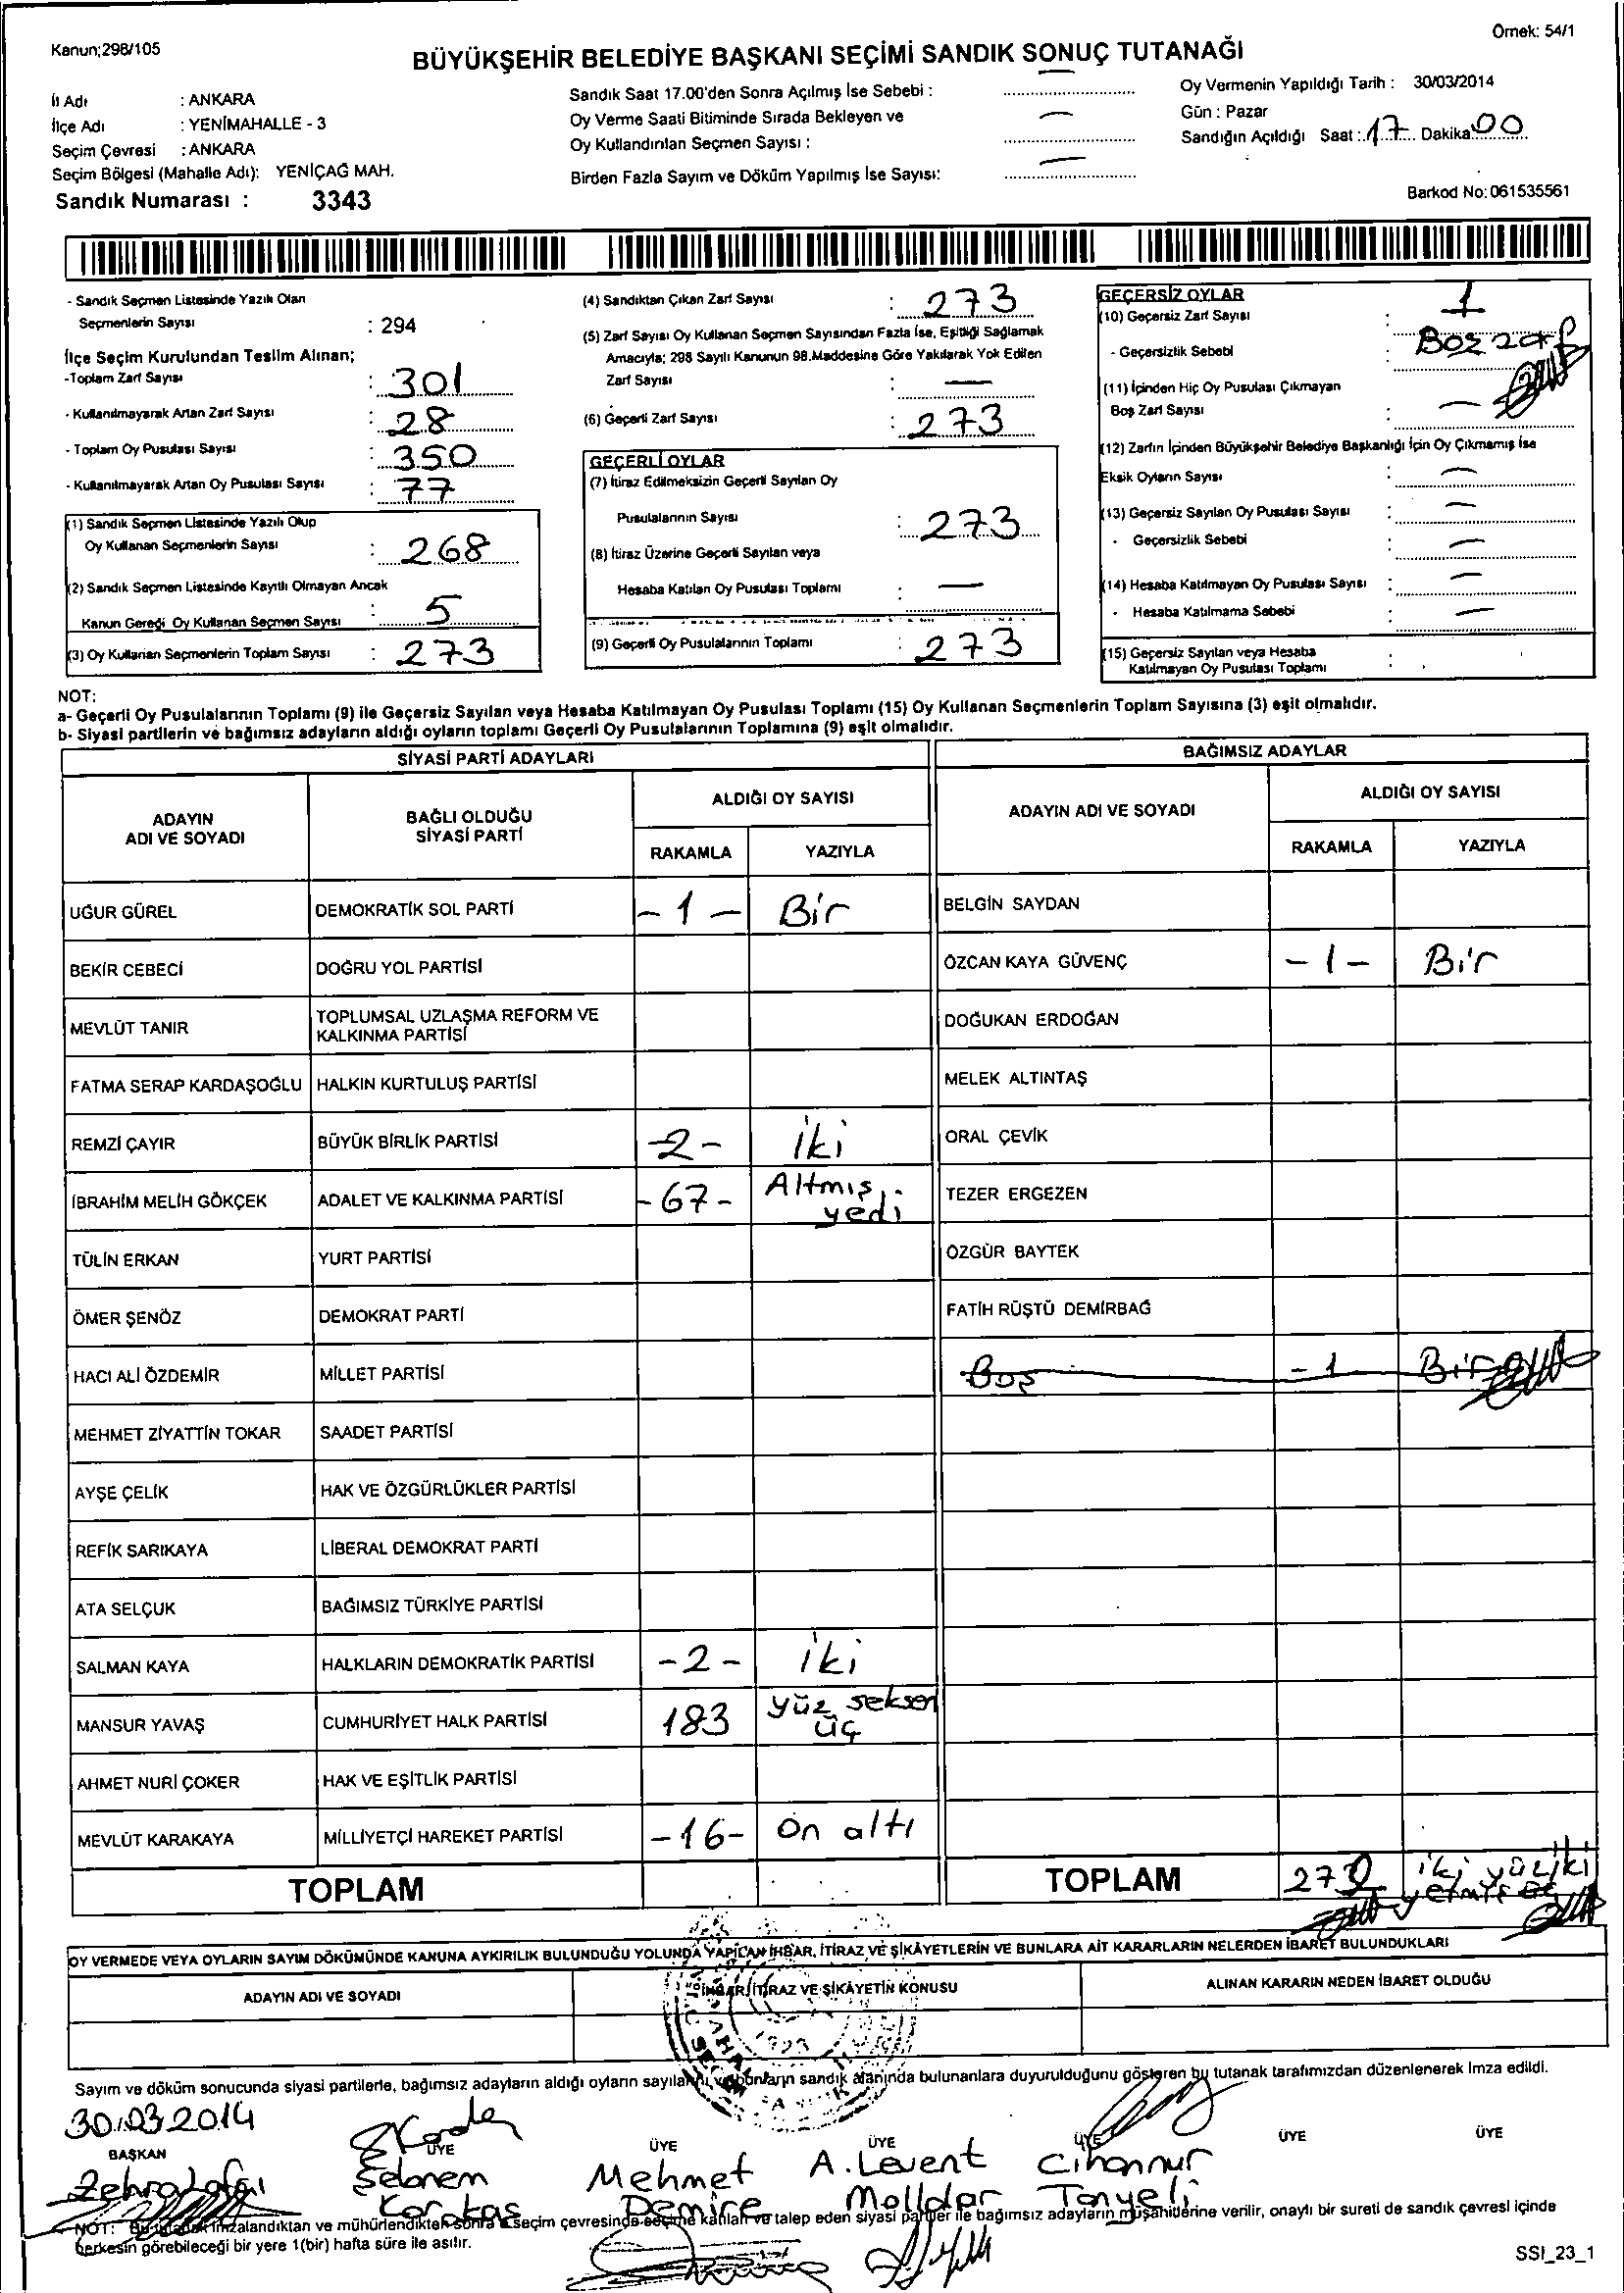 Kanun;298/105
Örnek: 54/1
BÜYÜKŞEHİR BELEDİYE BAŞKANI SEÇİMİ SANDIK SONUÇ TUTANAĞI
İl Adı : ANKARA
İlçe Adı : YENİMAHALLE - 3
Seçim Çevresi : ANKARA
Seçim Bölgesi (Mahalle Adı): YENİÇAĞ MAH.
Sandık Numarası : 3343
Sandık Saat 17.00'den Sonra Açılmış İse Sebebi : —
Oy Verme Saati Bitiminde Sırada Bekleyen ve
Oy Kullandırılan Seçmen Sayısı : —
Birden Fazla Sayım ve Döküm Yapılmış İse Sayısı: —
Oy Vermenin Yapıldığı Tarih : 30/03/2014
Gün : Pazar
Sandığın Açıldığı Saat : 17 Dakika 00
Barkod No: 061535561
- Sandık Seçmen Listesinde Yazılı Olan
Seçmenlerin Sayısı : 294
İlçe Seçim Kurulundan Teslim Alınan;
-Toplam Zarf Sayısı : 301
- Kullanılmayarak Artan Zarf Sayısı : 28
- Toplam Oy Pusulası Sayısı : 350
- Kullanılmayarak Artan Oy Pusulası Sayısı : 77
(1) Sandık Seçmen Listesinde Yazılı Olup
Oy Kullanan Seçmenlerin Sayısı : 268
(2) Sandık Seçmen Listesinde Kayıtlı Olmayan Ancak
Kanun Gereği Oy Kullanan Seçmen Sayısı : 5
(3) Oy Kullanan Seçmenlerin Toplam Sayısı : 273
(4) Sandıktan Çıkan Zarf Sayısı : 273
(5) Zarf Sayısı Oy Kullanan Seçmen Sayısından Fazla İse, Eşitliği Sağlamak
Amacıyla; 298 Sayılı Kanunun 98.Maddesine Göre Yakılarak Yok Edilen
Zarf Sayısı : —
(6) Geçerli Zarf Sayısı : 273
GEÇERLİ OYLAR
(7) İtiraz Edilmeksizin Geçerli Sayılan Oy
Pusulalarının Sayısı : 273
(8) İtiraz Üzerine Geçerli Sayılan veya
Hesaba Katılan Oy Pusulası Toplamı : —
(9) Geçerli Oy Pusulalarının Toplamı : 273
GEÇERSİZ OYLAR
(10) Geçersiz Zarf Sayısı : 1
- Geçersizlik Sebebi : Boş zarf
(11) İçinden Hiç Oy Pusulası Çıkmayan
Boş Zarf Sayısı : —
(12) Zarfın İçinden Büyükşehir Belediye Başkanlığı İçin Oy Çıkmamış İse
Eksik Oyların Sayısı : —
(13) Geçersiz Sayılan Oy Pusulası Sayısı : —
- Geçersizlik Sebebi : —
(14) Hesaba Katılmayan Oy Pusulası Sayısı : —
- Hesaba Katılmama Sebebi : —
(15) Geçersiz Sayılan veya Hesaba
Katılmayan Oy Pusulası Toplamı :
NOT:
a- Geçerli Oy Pusulalarının Toplamı (9) ile Geçersiz Sayılan veya Hesaba Katılmayan Oy Pusulası Toplamı (15) Oy Kullanan Seçmenlerin Toplam Sayısına (3) eşit olmalıdır.
b- Siyasi partilerin ve bağımsız adayların aldığı oyların toplamı Geçerli Oy Pusulalarının Toplamına (9) eşit olmalıdır.
SİYASİ PARTİ ADAYLARI
BAĞIMSIZ ADAYLAR
ADAYIN
ADI VE SOYADI
BAĞLI OLDUĞU
SİYASİ PARTİ
ALDIĞI OY SAYISI
RAKAMLA YAZIYLA
ADAYIN ADI VE SOYADI
ALDIĞI OY SAYISI
RAKAMLA YAZIYLA
UĞUR GÜREL DEMOKRATİK SOL PARTİ - 1 - Bir BELGİN SAYDAN
BEKİR CEBECİ DOĞRU YOL PARTİSİ ÖZCAN KAYA GÜVENÇ - 1 - Bir
MEVLÜT TANIR TOPLUMSAL UZLAŞMA REFORM VE
KALKINMA PARTİSİ DOĞUKAN ERDOĞAN
FATMA SERAP KARDAŞOĞLU HALKIN KURTULUŞ PARTİSİ MELEK ALTINTAŞ
REMZİ ÇAYIR BÜYÜK BİRLİK PARTİSİ -2- iki ORAL ÇEVİK
İBRAHİM MELİH GÖKÇEK ADALET VE KALKINMA PARTİSİ -67- Altmış yedi TEZER ERGEZEN
TÜLİN ERKAN YURT PARTİSİ ÖZGÜR BAYTEK
ÖMER ŞENÖZ DEMOKRAT PARTİ FATİH RÜŞTÜ DEMİRBAĞ
HACI ALİ ÖZDEMİR MİLLET PARTİSİ Boş - 1 Bir
MEHMET ZİYATTİN TOKAR SAADET PARTİSİ
AYŞE ÇELİK HAK VE ÖZGÜRLÜKLER PARTİSİ
REFİK SARIKAYA LİBERAL DEMOKRAT PARTİ
ATA SELÇUK BAĞIMSIZ TÜRKİYE PARTİSİ
SALMAN KAYA HALKLARIN DEMOKRATİK PARTİSİ -2- iki
MANSUR YAVAŞ CUMHURİYET HALK PARTİSİ 183 yüz seksen
üç
AHMET NURİ ÇOKER HAK VE EŞİTLİK PARTİSİ
MEVLÜT KARAKAYA MİLLİYETÇİ HAREKET PARTİSİ -16- On altı
TOPLAM TOPLAM 272 iki yüz iki
yetmiş
OY VERMEDE VEYA OYLARIN SAYIM DÖKÜMÜNDE KANUNA AYKIRILIK BULUNDUĞU YOLUNDA YAPILAN İHBAR, İTİRAZ VE ŞİKÂYETLERİN VE BUNLARA AİT KARARLARIN NELERDEN İBARET BULUNDUKLARI
ADAYIN ADI VE SOYADI İHBAR, İTİRAZ VE ŞİKÂYETİN KONUSU ALINAN KARARIN NEDEN İBARET OLDUĞU
Sayım ve döküm sonucunda siyasi partilerle, bağımsız adayların aldığı oyların sayılarını ve bunların sandık alanında bulunanlara duyurulduğunu gösteren bu tutanak tarafımızdan düzenlenerek imza edildi.
30.03.2014
BAŞKAN ÜYE ÜYE ÜYE ÜYE ÜYE ÜYE
Zehra
Şebnem
Karakaş
Mehmet
Demire
A. Levent
Molldar
Cihannur
Tanyeli
NOT: Bu tutanak imzalandıktan ve mühürlendikten sonra seçim çevresinde seçime katılan ve talep eden siyasi partiler ile bağımsız adayların müşahitlerine verilir, onaylı bir sureti de sandık çevresi içinde
herkesin görebileceği bir yere 1(bir) hafta süre ile asılır.
SSI_23_1